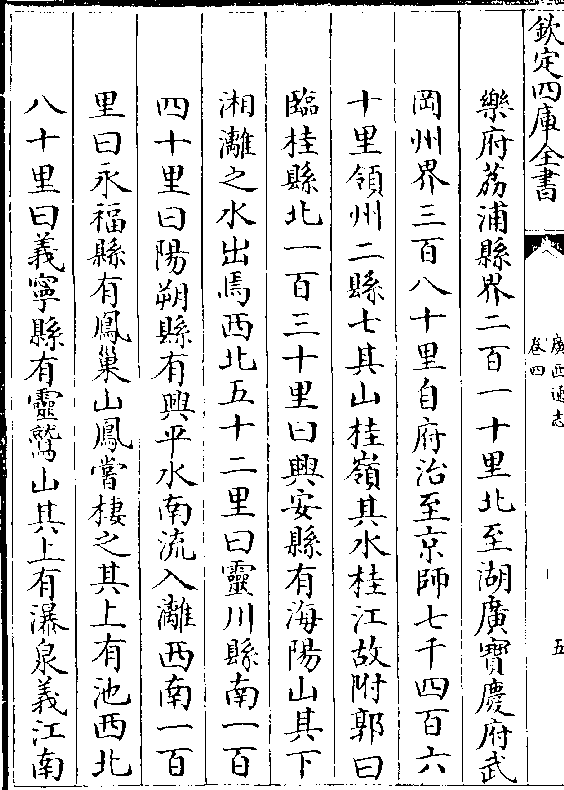 欽定四庫全書
廣西通志
卷四
五
樂府荔浦縣界二百一十里北至湖廣寶慶府武
岡州界三百八十里自府治至京師七千四百六
十里領州二縣七其山桂嶺其水桂江故附郭曰
臨桂縣北一百三十里曰興安縣有海陽山其下
湘灕之水出焉西北五十二里曰靈川縣南一百
四十里曰陽朔縣有興平水南流入灕西南一百
里曰永福縣有鳳巢山鳳嘗棲之其上有池西北
八十里曰義寧縣有靈鷲山其上有瀑泉義江南